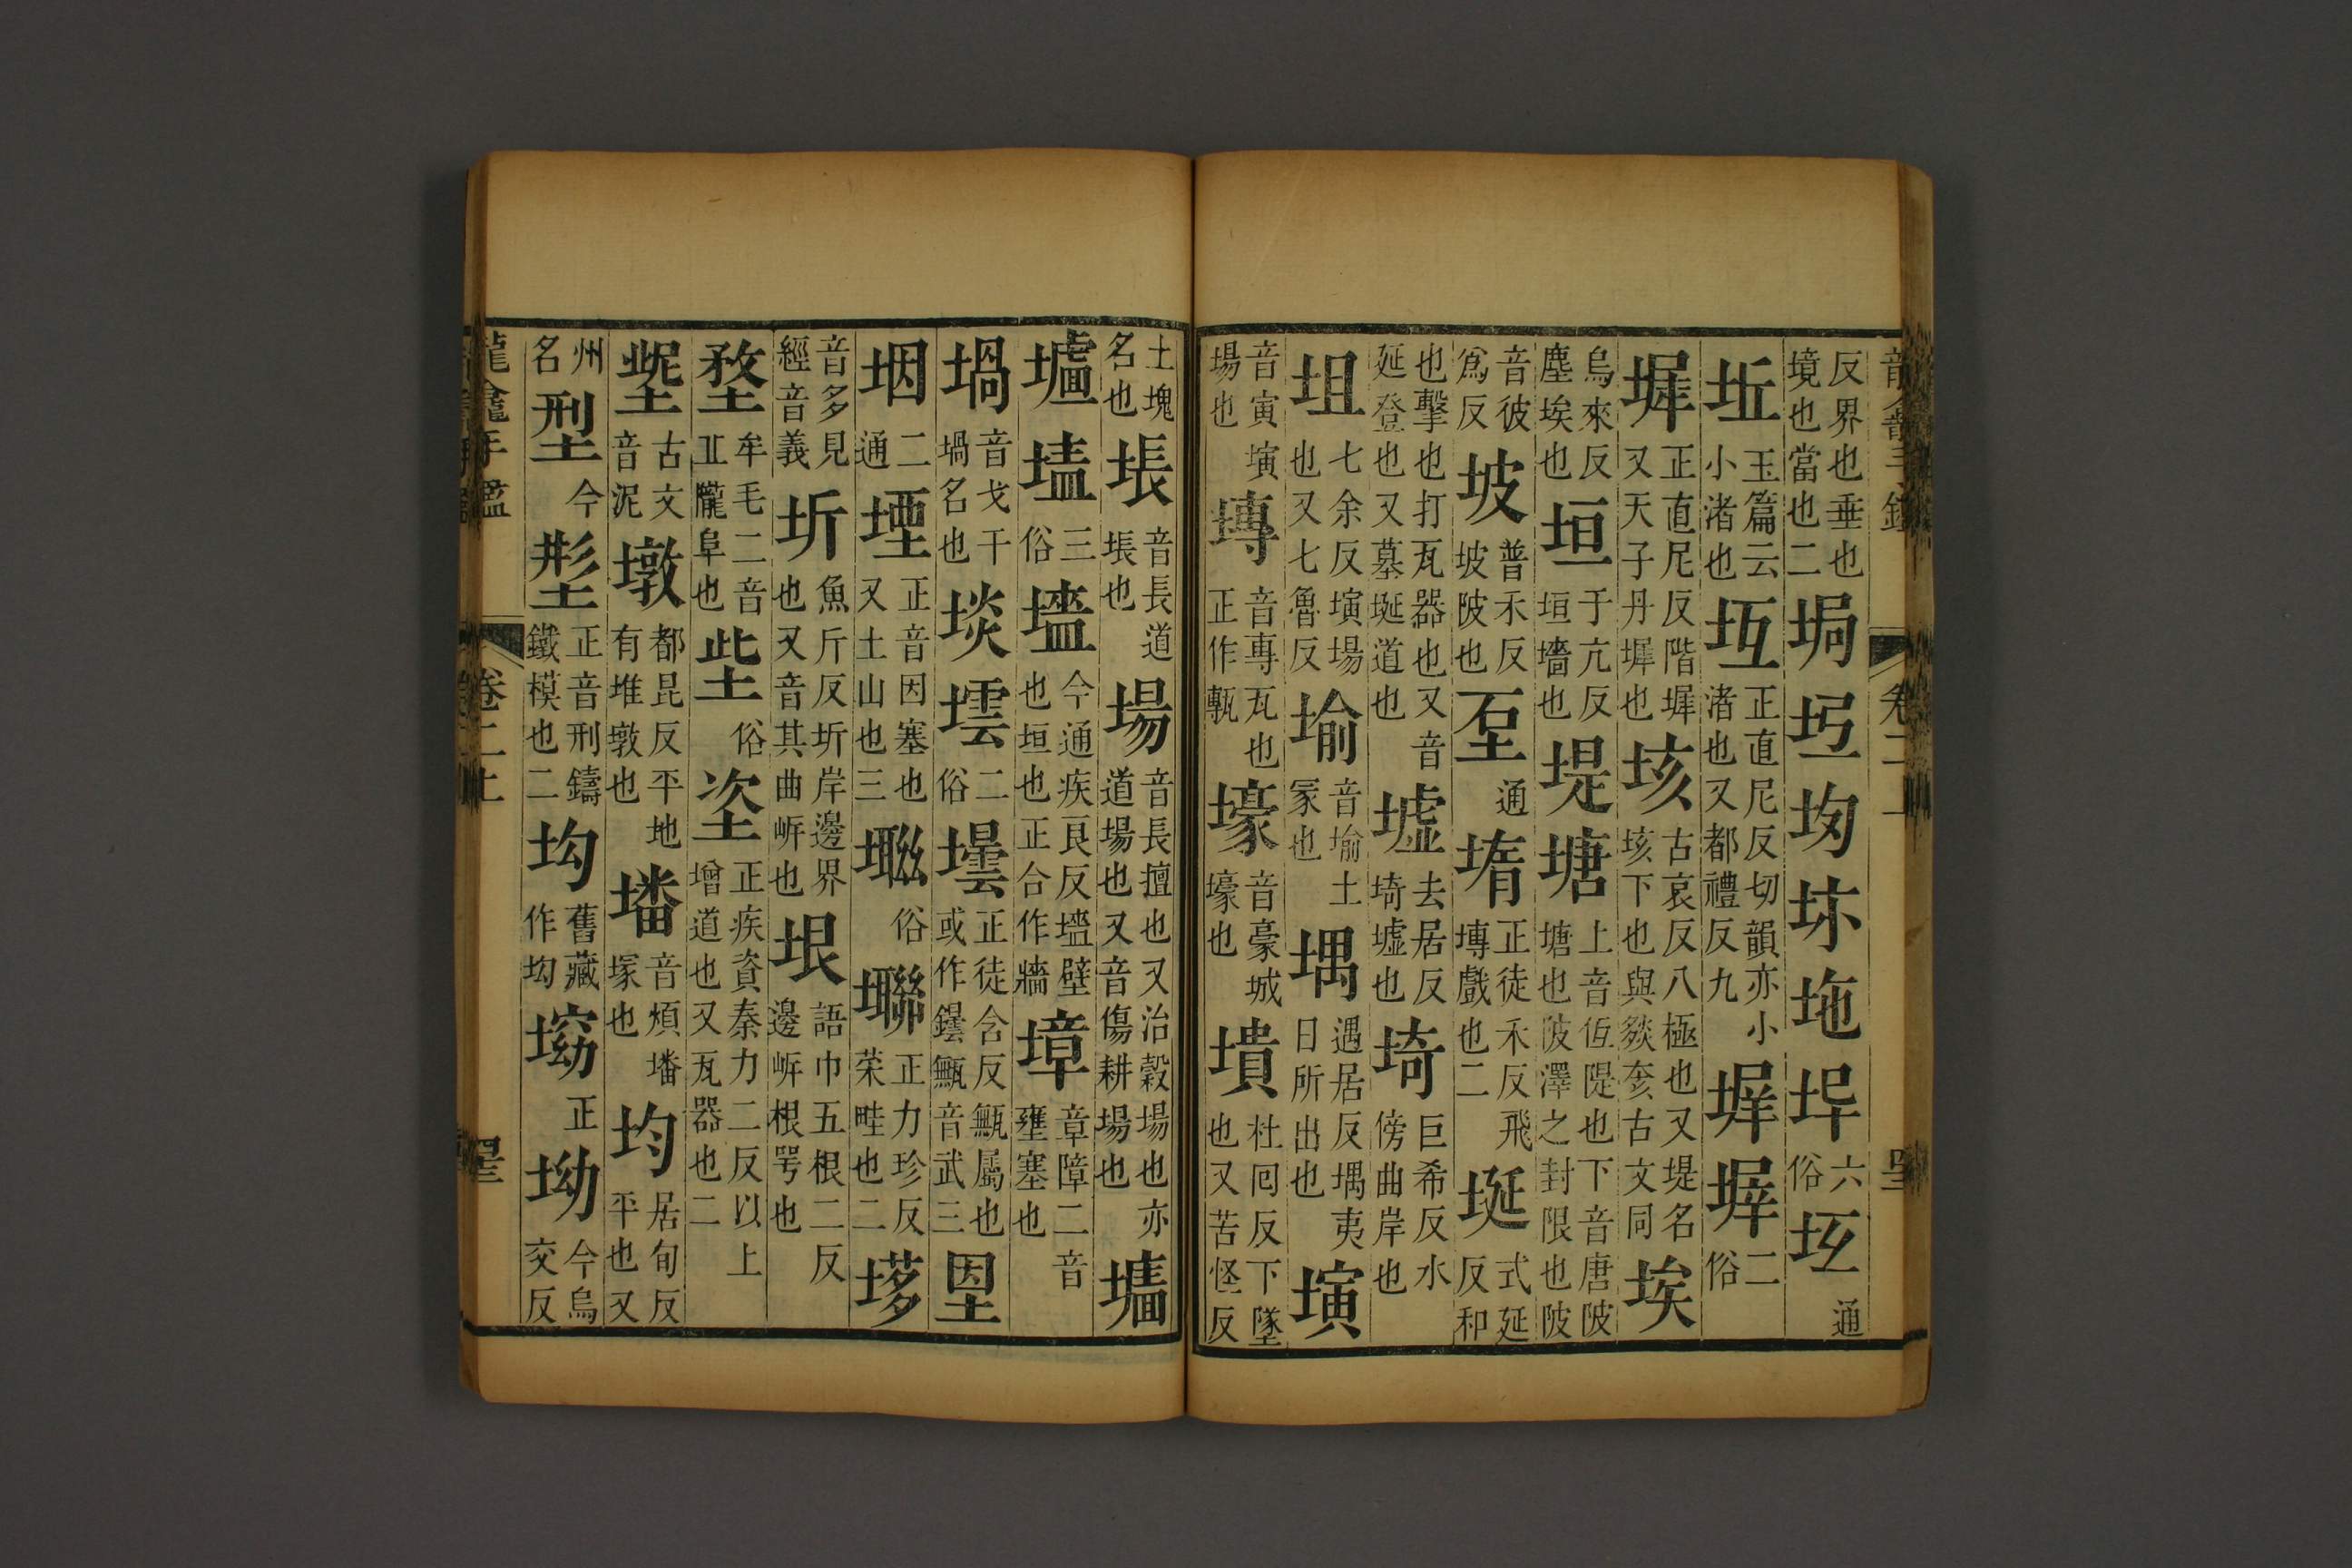 反界也垂也境也當也二坰𡊠均坏垉㘿六俗坘通
坵玉篇云小渚也坘正直尼反切韻亦小渚也又都禮反九墀墀二俗
墀正直尼反階墀又天子丹墀也垓古哀反八極也又堤名垓下也與㱾奒古文同埃
烏來反塵埃也垣于亢反垣墻也堤塘上音低隄也下音唐陂塘也陂澤之封限也陂
音彼爲反坡普禾反坡陂也𡊣通堶正徒禾反飛塼戲也二埏式延反和
也擊也打瓦器也又音延登也又墓埏道也墟去居反埼墟也埼巨希反水傍曲岸也
坥七余反㙉場也又七魯反堬音𠊧土冢也堣遇居反堣夷日所出也㙉
音寅㙉場也塼音專瓦也正作甎壕音豪城壕也㙺杜囘反下墜也又苦怪反
龍龕手鑑 卷二上
土塊名也䛫音長道䛫也場音長擅也又治穀場也亦道場也又音傷耕場也墻
壚𡑑三俗墻今通疾良反墻壁也垣也正合作牆墇章障二音壅塞也
堝音戈干堝名也埮㙊二俗壜正徒含反甒屬也或作罎甒音武三垔
㘻二通堙正音因塞也又土山也三𡑯俗𡑰正力珍反菜畦也二㙩
音多見經音義圻魚斤反圻岸邊界也又音其曲岸也垠語巾五根二反邊岸根咢也
堥牟毛二音丘隴阜也㘹俗垐正疾資秦力二反以上增道也又瓦器也二
埿古文音泥墩都昆反平地有堆墩也墦音煩墦塚也均居旬反平也又
州名型今㓝正音刑鑄鐵模也二坸舊藏作坸㙛正坳今烏交反
龍龕手鑑 卷二上